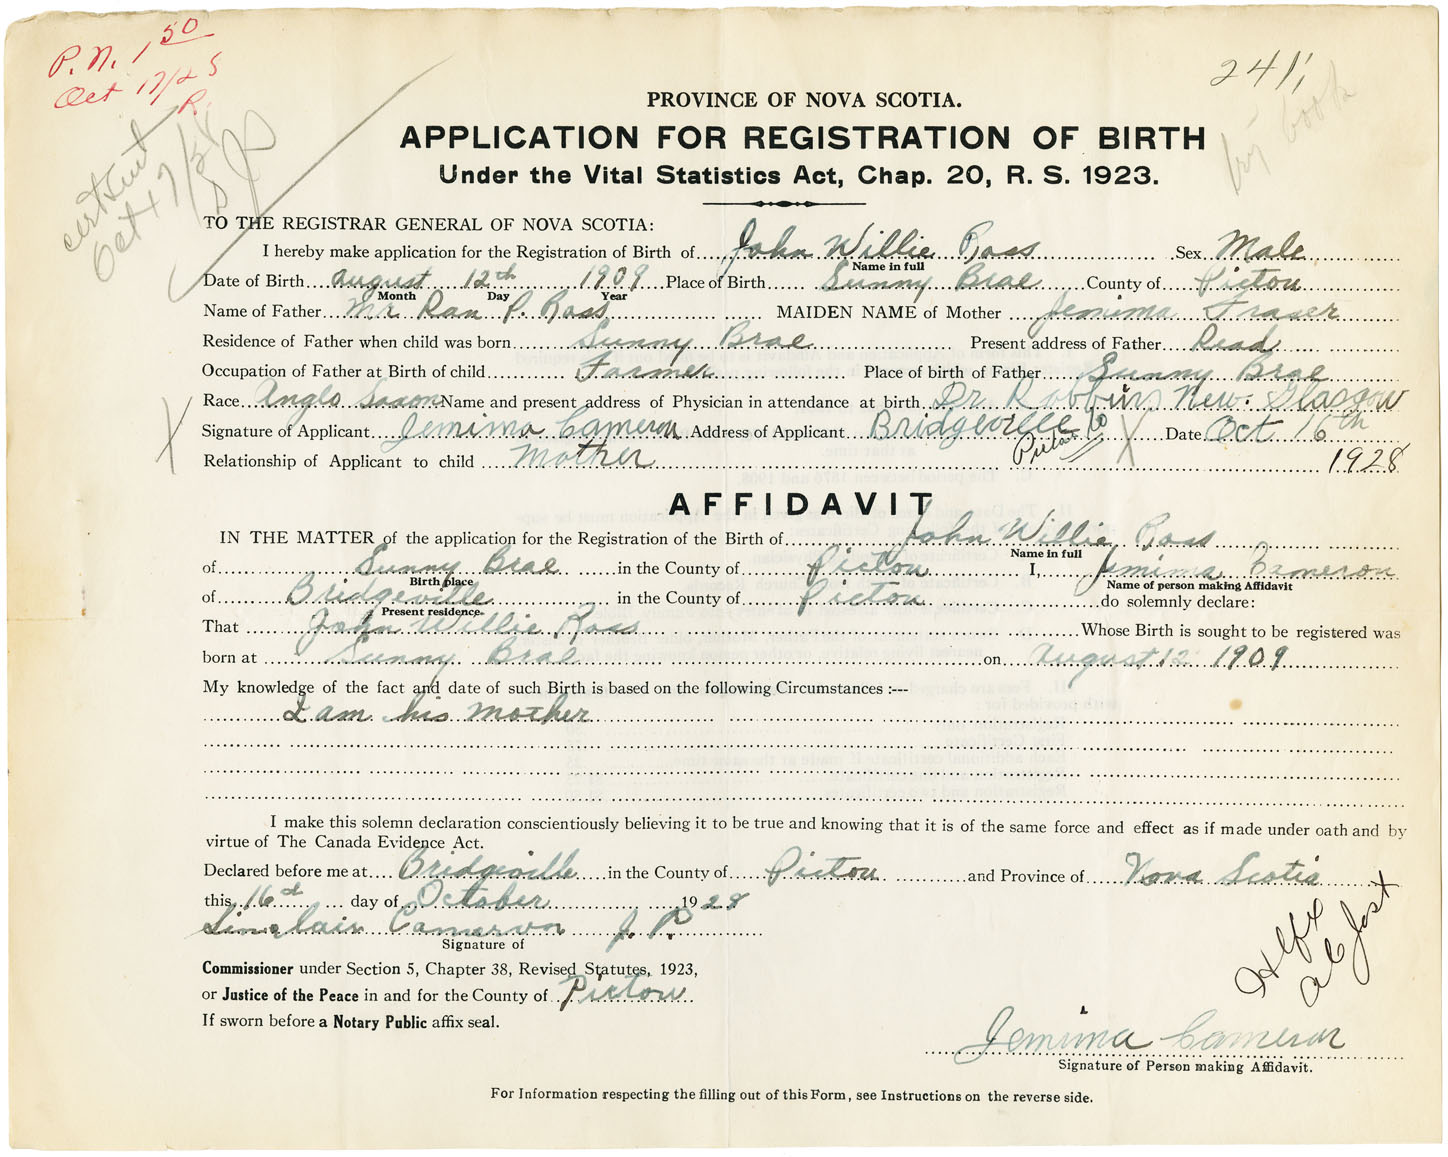 P. N. 1 50
Oct 17/28
R.
2411
by book
cert sent
Oct 17/28
PROVINCE OF NOVA SCOTIA.
APPLICATION FOR REGISTRATION OF BIRTH
Under the Vital Statistics Act, Chap. 20, R. S. 1923.
TO THE REGISTRAR GENERAL OF NOVA SCOTIA:
I hereby make application for the Registration of Birth of John Willie Ross Sex Male
Name in full
Date of Birth August 12th 1909 Place of Birth Sunny Brae County of Pictou
Month Day Year
Name of Father Mr Dan P. Ross MAIDEN NAME of Mother Jemima Fraser
Residence of Father when child was born Sunny Brae Present address of Father Dead
Occupation of Father at Birth of child Farmer Place of birth of Father Sunny Brae
Race Anglo Saxon Name and present address of Physician in attendance at birth Dr Robbins New Glasgow
Signature of Applicant Jemima Cameron Address of Applicant Bridgeville Pictou Co Date Oct 16th
Relationship of Applicant to child Mother 1928
AFFIDAVIT
IN THE MATTER of the application for the Registration of the Birth of John Willie Ross
Name in full
of Sunny Brae in the County of Pictou I, Jemima Cameron
Birth place Name of person making Affidavit
of Bridgeville in the County of Pictou do solemnly declare:
Present residence
That John Willie Ross Whose Birth is sought to be registered was
born at Sunny Brae on August 12 1909
My knowledge of the fact and date of such Birth is based on the following Circumstances :---
I am his mother
I make this solemn declaration conscientiously believing it to be true and knowing that it is of the same force and effect as if made under oath and by
virtue of The Canada Evidence Act.
Declared before me at Bridgeville in the County of Pictou and Province of Nova Scotia
this 16th day of October 1928
Sinclair Cameron J. P.
Signature of
Commissioner under Section 5, Chapter 38, Revised Statutes, 1923,
or Justice of the Peace in and for the County of Pictou
If sworn before a Notary Public affix seal.
Hlfx
Jemima Cameron
Signature of Person making Affidavit.
For Information respecting the filling out of this Form, see Instructions on the reverse side.